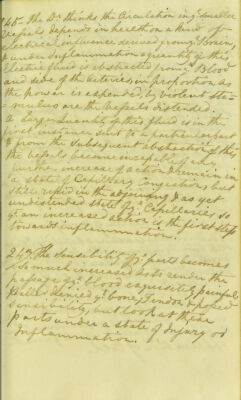 245. The Dr thinks the Circulation in ye smaller
Vessels depends in health on a kind of
electrical influence derived from ye Brain,
& under Inflammation a quantity of this
Electric fluid is abstracted from ye Blood
and side of the arteries in proportion as
the power is expended, by violent sti-
mulus are the Vessels distended.
A larger quantity of this fluid is in the
first instance sent to a particular part
& from the subsequent abstraction of this
the vessels become incapable of any
further increase of action & remain in
a state of Capillary Congestion, but
still as yet
undistended state of ye Capillaries so
yt an increased action is the first step
towards inflammation.
247. The Sensibility of ye parts becomes
so much increased as to render the
passage of ye blood exquisitely painful
Haller denied ye bone, Tendon possessed
sensibility, but look at these
parts under a state of Injury or
Inflammation.